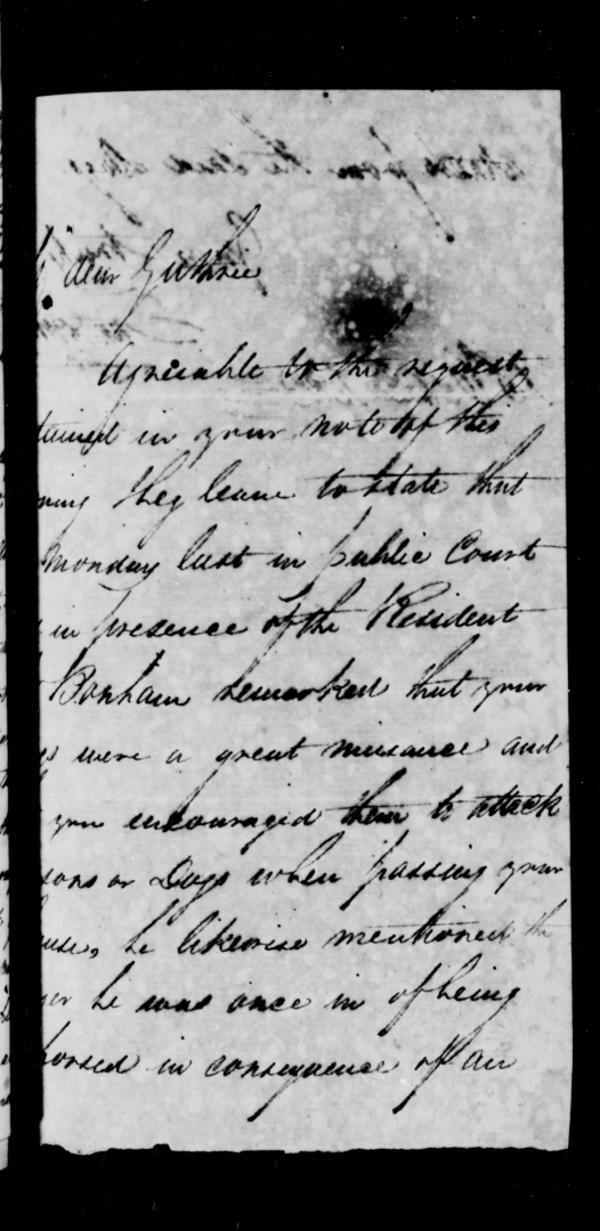 dear Guthrie
Agreeable to the request
tained in your note of this
ning I beg leave to state that
Monday last in public Court
in presence of the Resident
Bonham remarked that your
s were a great nuisance and
you encouraged them to attack
sons or Dogs when passing your
use, he likewise mentioned the
ger he was once in of being
horsed in consequence of an